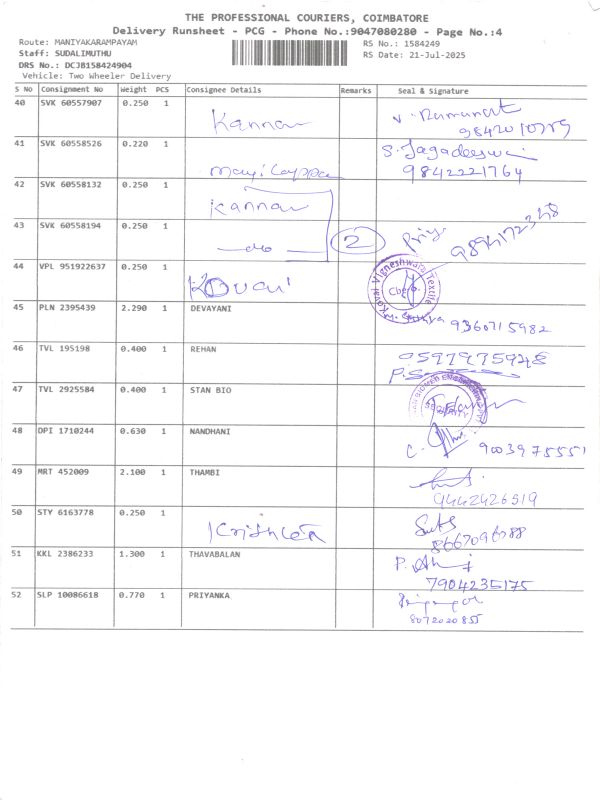 THE PROFESSIONAL COURIERS, COIMBATORE
Delivery Runsheet - PCG - Phone No.:9047080280 - Page No.:4
Route: MANIYAKARAMPAYAM
Staff: SUDALIMUTHU
DRS No.: DCJB158424904
Vehicle: Two Wheeler Delivery
RS No.: 1584249
RS Date: 21-Jul-2025
S No Consignment No Weight PCS Consignee Details Remarks Seal & Signature
40 SVK 60557907 0.250 1 Kannan
41 SVK 60558526 0.220 1 9842221764
42 SVK 60558132 0.250 1 Kannan
43 SVK 60558194 0.250 1 do 2 Priya
44 VPL 951922637 0.250 1 Kovai Vigneshwara Textile Cbe
45 PLN 2395439 2.290 1 DEVAYANI 9360715982
46 TVL 195198 0.400 1 REHAN
47 TVL 2925584 0.400 1 STAN BIO
48 DPI 1710244 0.630 1 NANDHANI 9003975551
49 MRT 452009 2.100 1 THAMBI 9442426519
50 STY 6163778 0.250 1
51 KKL 2386233 1.300 1 THAVABALAN 7904235175
52 SLP 10086618 0.770 1 PRIYANKA